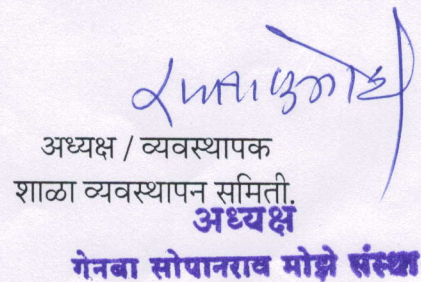 अध्यक्ष / व्यवस्थापक
शाळा व्यवस्थापन समिती.
अध्यक्ष
गेनबा सोपानराव मोझे संस्था